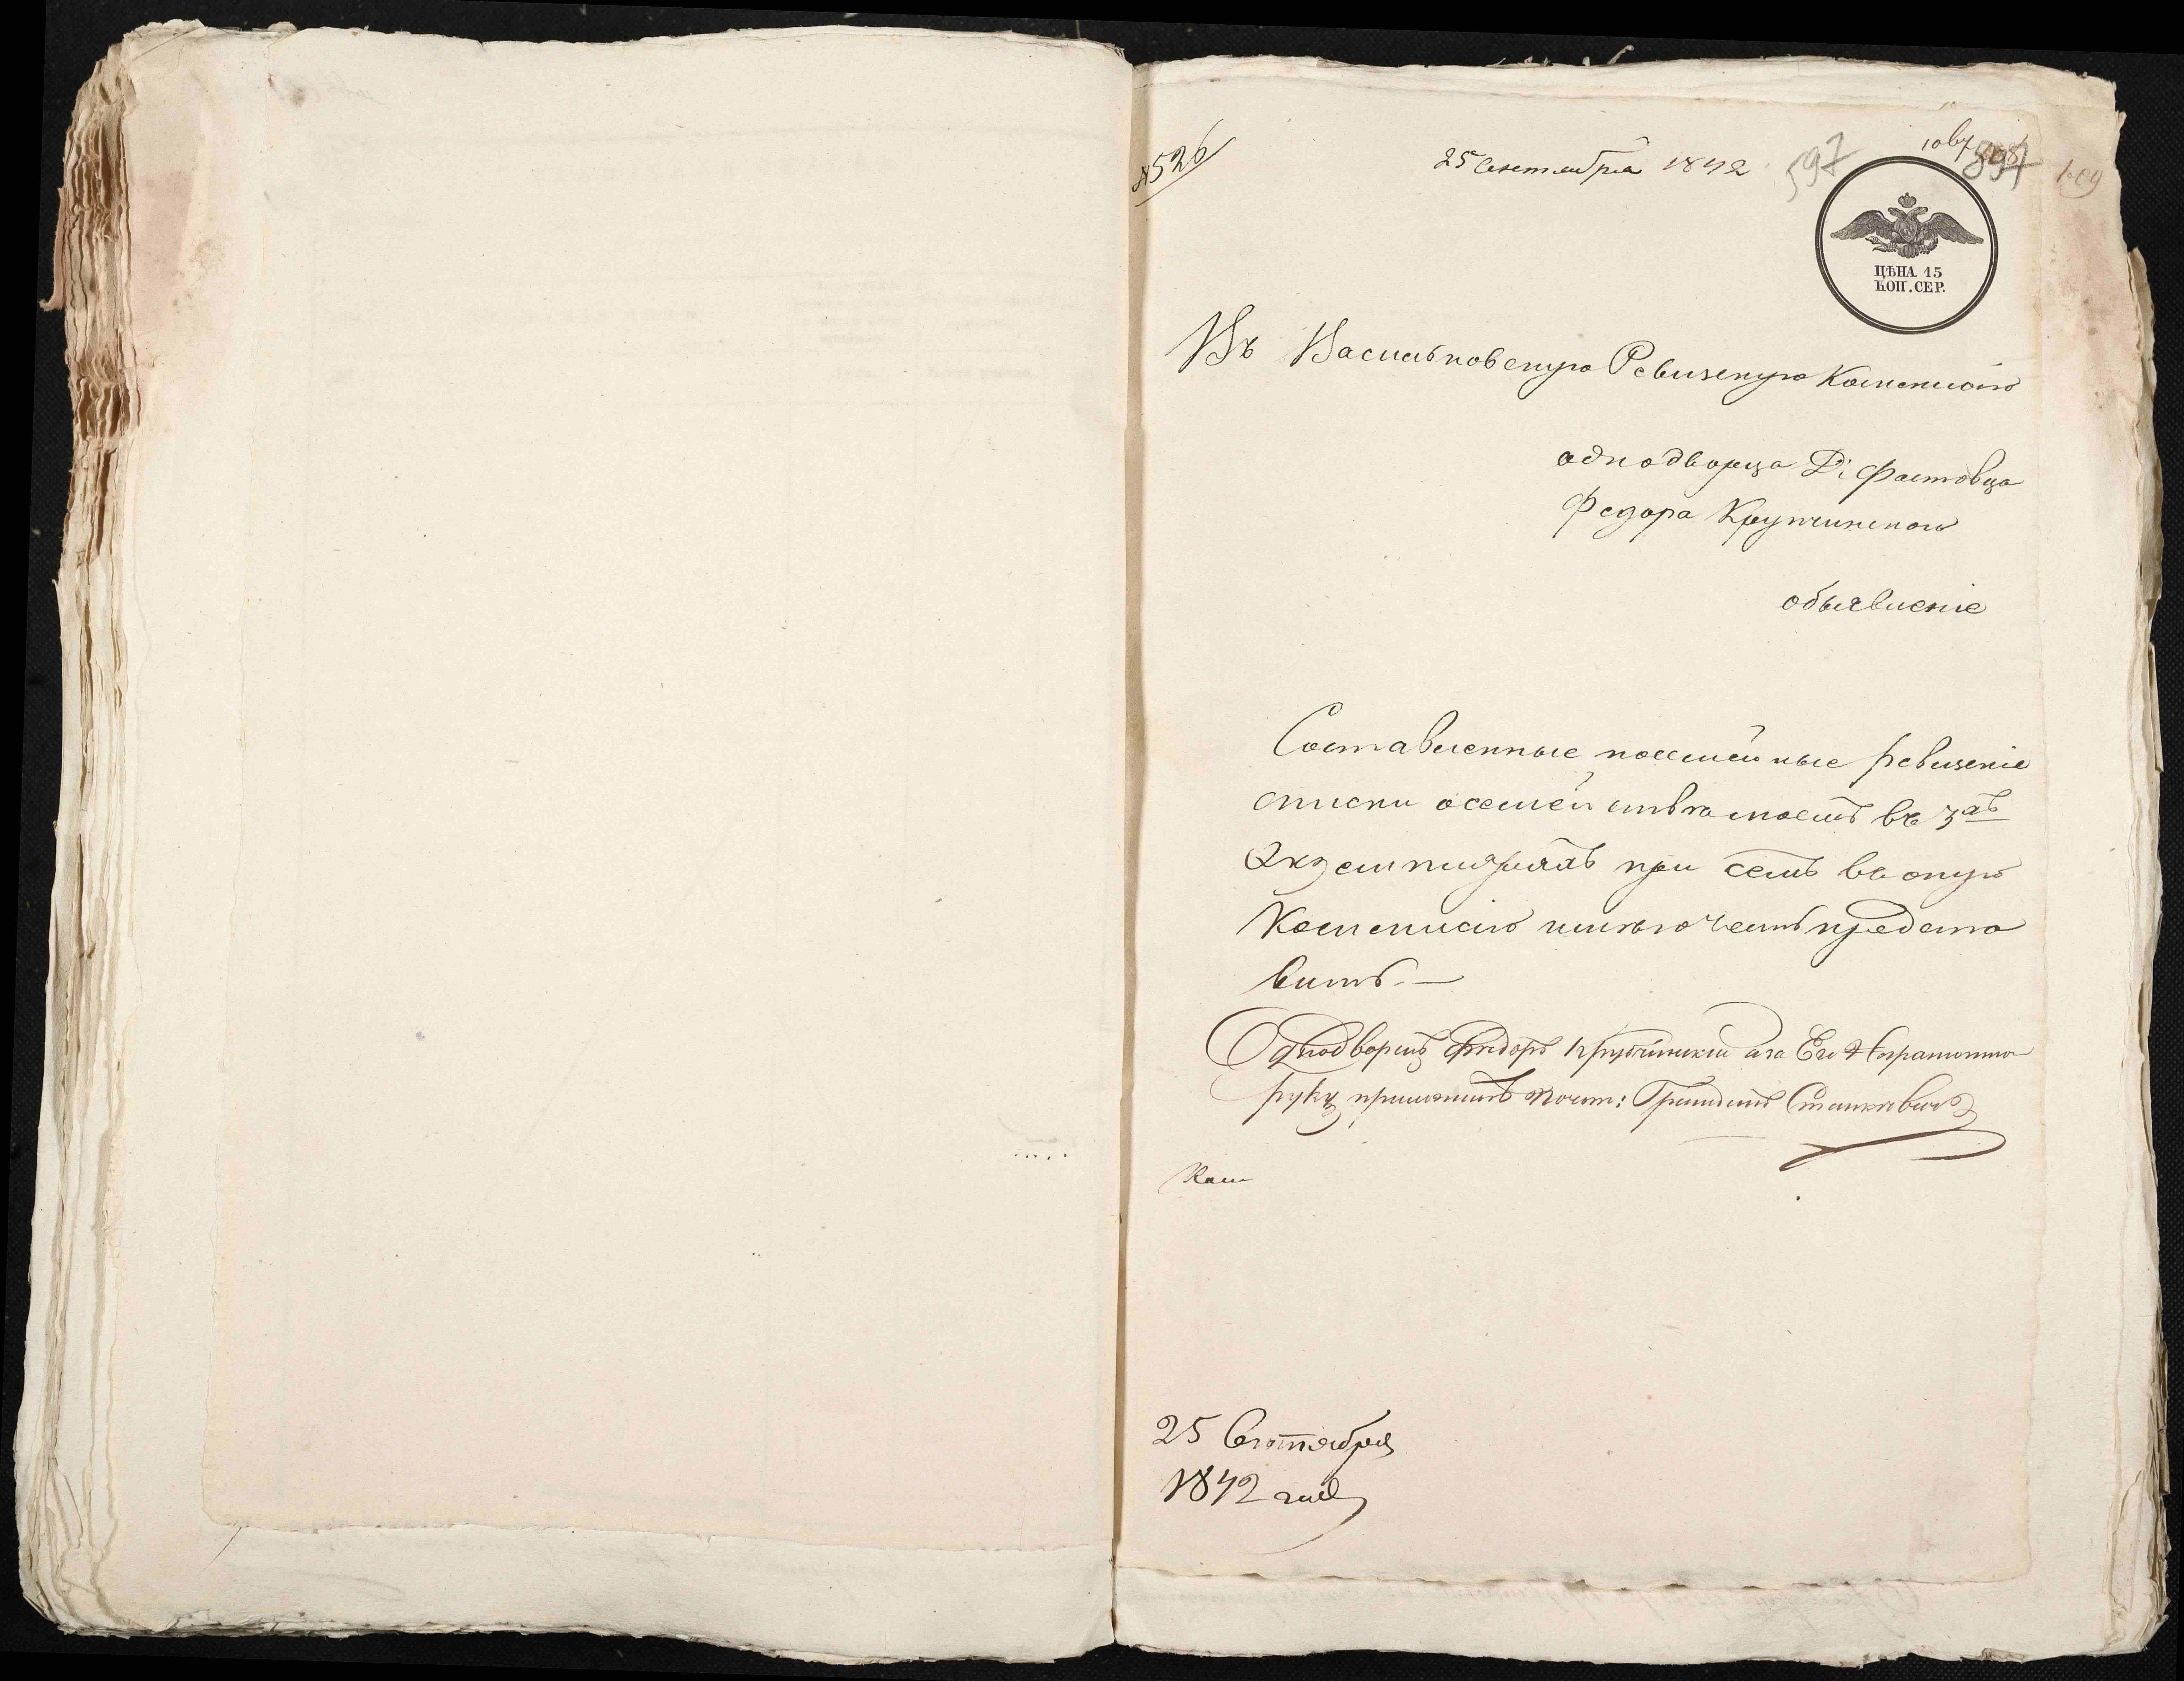 №526
25 Сентября 1842
597
ЦѢНА 15
КОП. СЕР.
Въ Васильковскую Ревизскую Коммисию
однодворца Д: Фастовца
Федора Крупчинского
объявленіе
Составленные посемейные ревизскіе
списки о семействѣ моемъ въ 3хъ
Экземплярахъ при семъ въ оную
Коммисию имѣю честь предста
вить.—
Однодворецъ Федоръ Крупчинский а за Его Неграмотно
руку приложилъ Станкевичъ
25 Сентября
1842 года